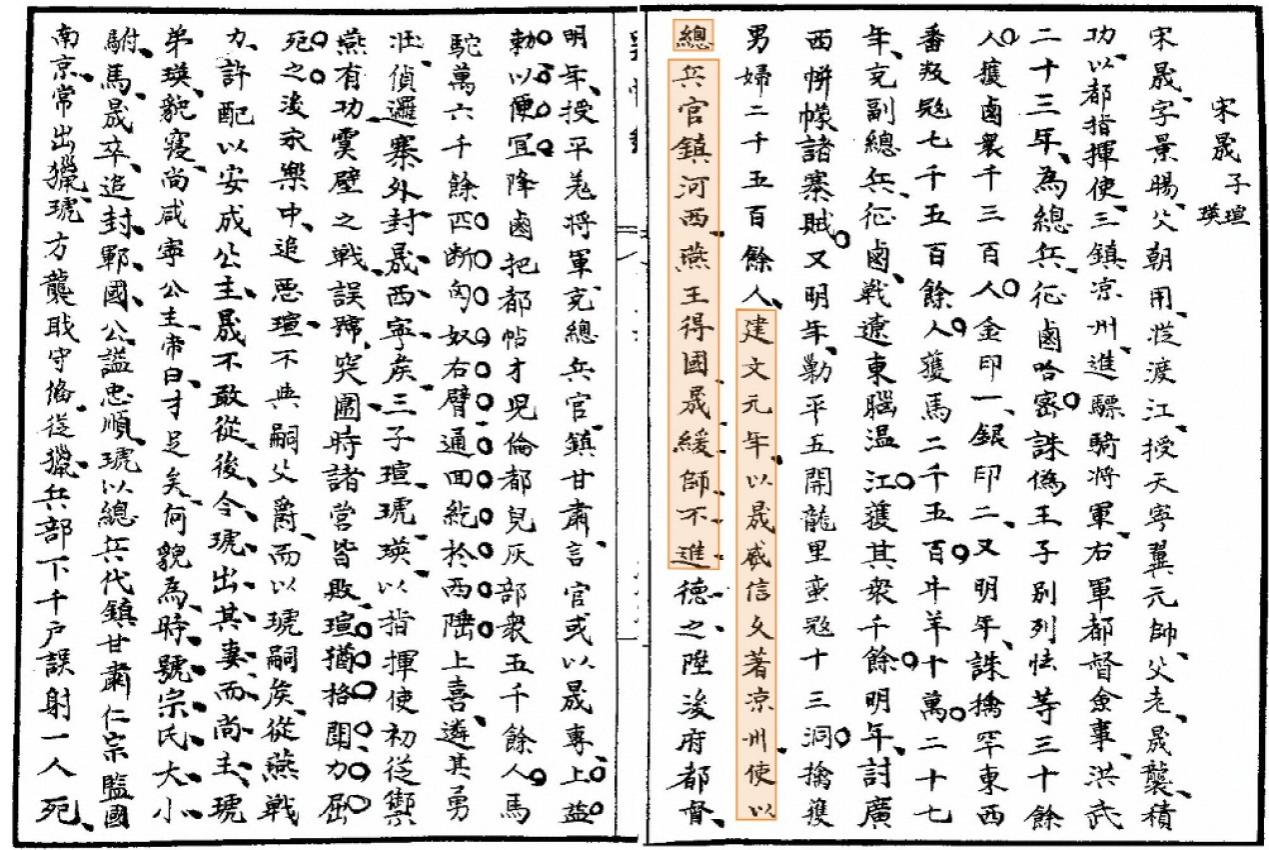 宋晟子瑄瑛
宋晟字景賜父朝用從渡江授天寧翼元帥父老晟襲積
功以都指揮使三鎮凉州進驃騎將軍右軍都督僉事洪武
二十三年為總兵征鹵哈密誅僞王子別列怯等三十餘
人獲鹵衆千三百人金印一銀印二又明年誅擒罕東西
番叛㓂七千五百餘人獲馬二千五百牛羊十萬二十七
年充副總兵征鹵戰遼東腦温江獲其衆千餘明年討廣
西帡幪諸寨賊又明年勦平五開龍里蛮㓂十三洞擒獲
男婦二千五百餘人建文元年以晟威信久著凉州使以
總兵官鎮河西燕王得國晟緩師不進德之陞後府都督
明年授平羌將軍充總兵官鎮甘肅言官或以晟專上益
勅以便冝降鹵把都帖木児倫都兒灰部衆五千餘人馬
駝萬六千餘匹断匈奴右臂通回紇於西陲上喜遴其勇
壯偵邏寨外封晟西寧矦三子瑄琥瑛以指揮使初從禦
燕有功霊壁之戰誤歸突圍時諸营皆敗瑄猶格鬪力屈
死之後永樂中追惡瑄不與嗣父爵而以琥嗣矦從燕戰
力許配以安成公主晟不敢從後令琥出其妻而尚主琥
弟瑛貌寝尚咸寧公主帝曰才足矣何貌為時號宗氏大小
駙馬晟卒追封鄆國公謚忠順琥以總兵代鎮甘肅仁宗監國
南京常出獵琥方襲職守偹從獵兵部下千户誤射一人死